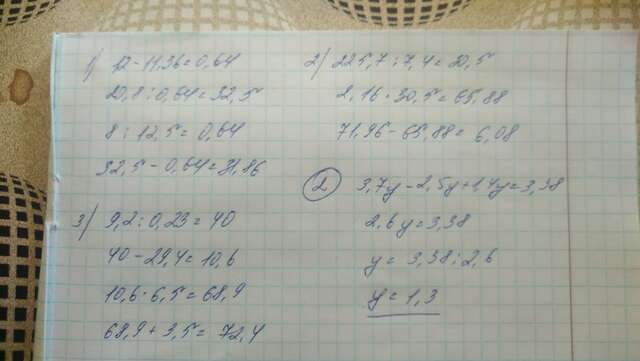 1) 12 - 11,36 = 0,64
20,8 : 0,64 = 32,5
8 : 12,5 = 0,64
32,5 - 0,64 = 31,86
3) 9,2 : 0,23 = 40
40 - 29,4 = 10,6
10,6 · 6,5 = 68,9
68,9 + 3,5 = 72,4
2) 225,7 : 7,4 = 30,5
2,16 · 30,5 = 65,88
71,96 - 65,88 = 6,08
2 3,7y - 2,5y + 1,4y = 3,38
2,6y = 3,38
y = 3,38 : 2,6
y = 1,3